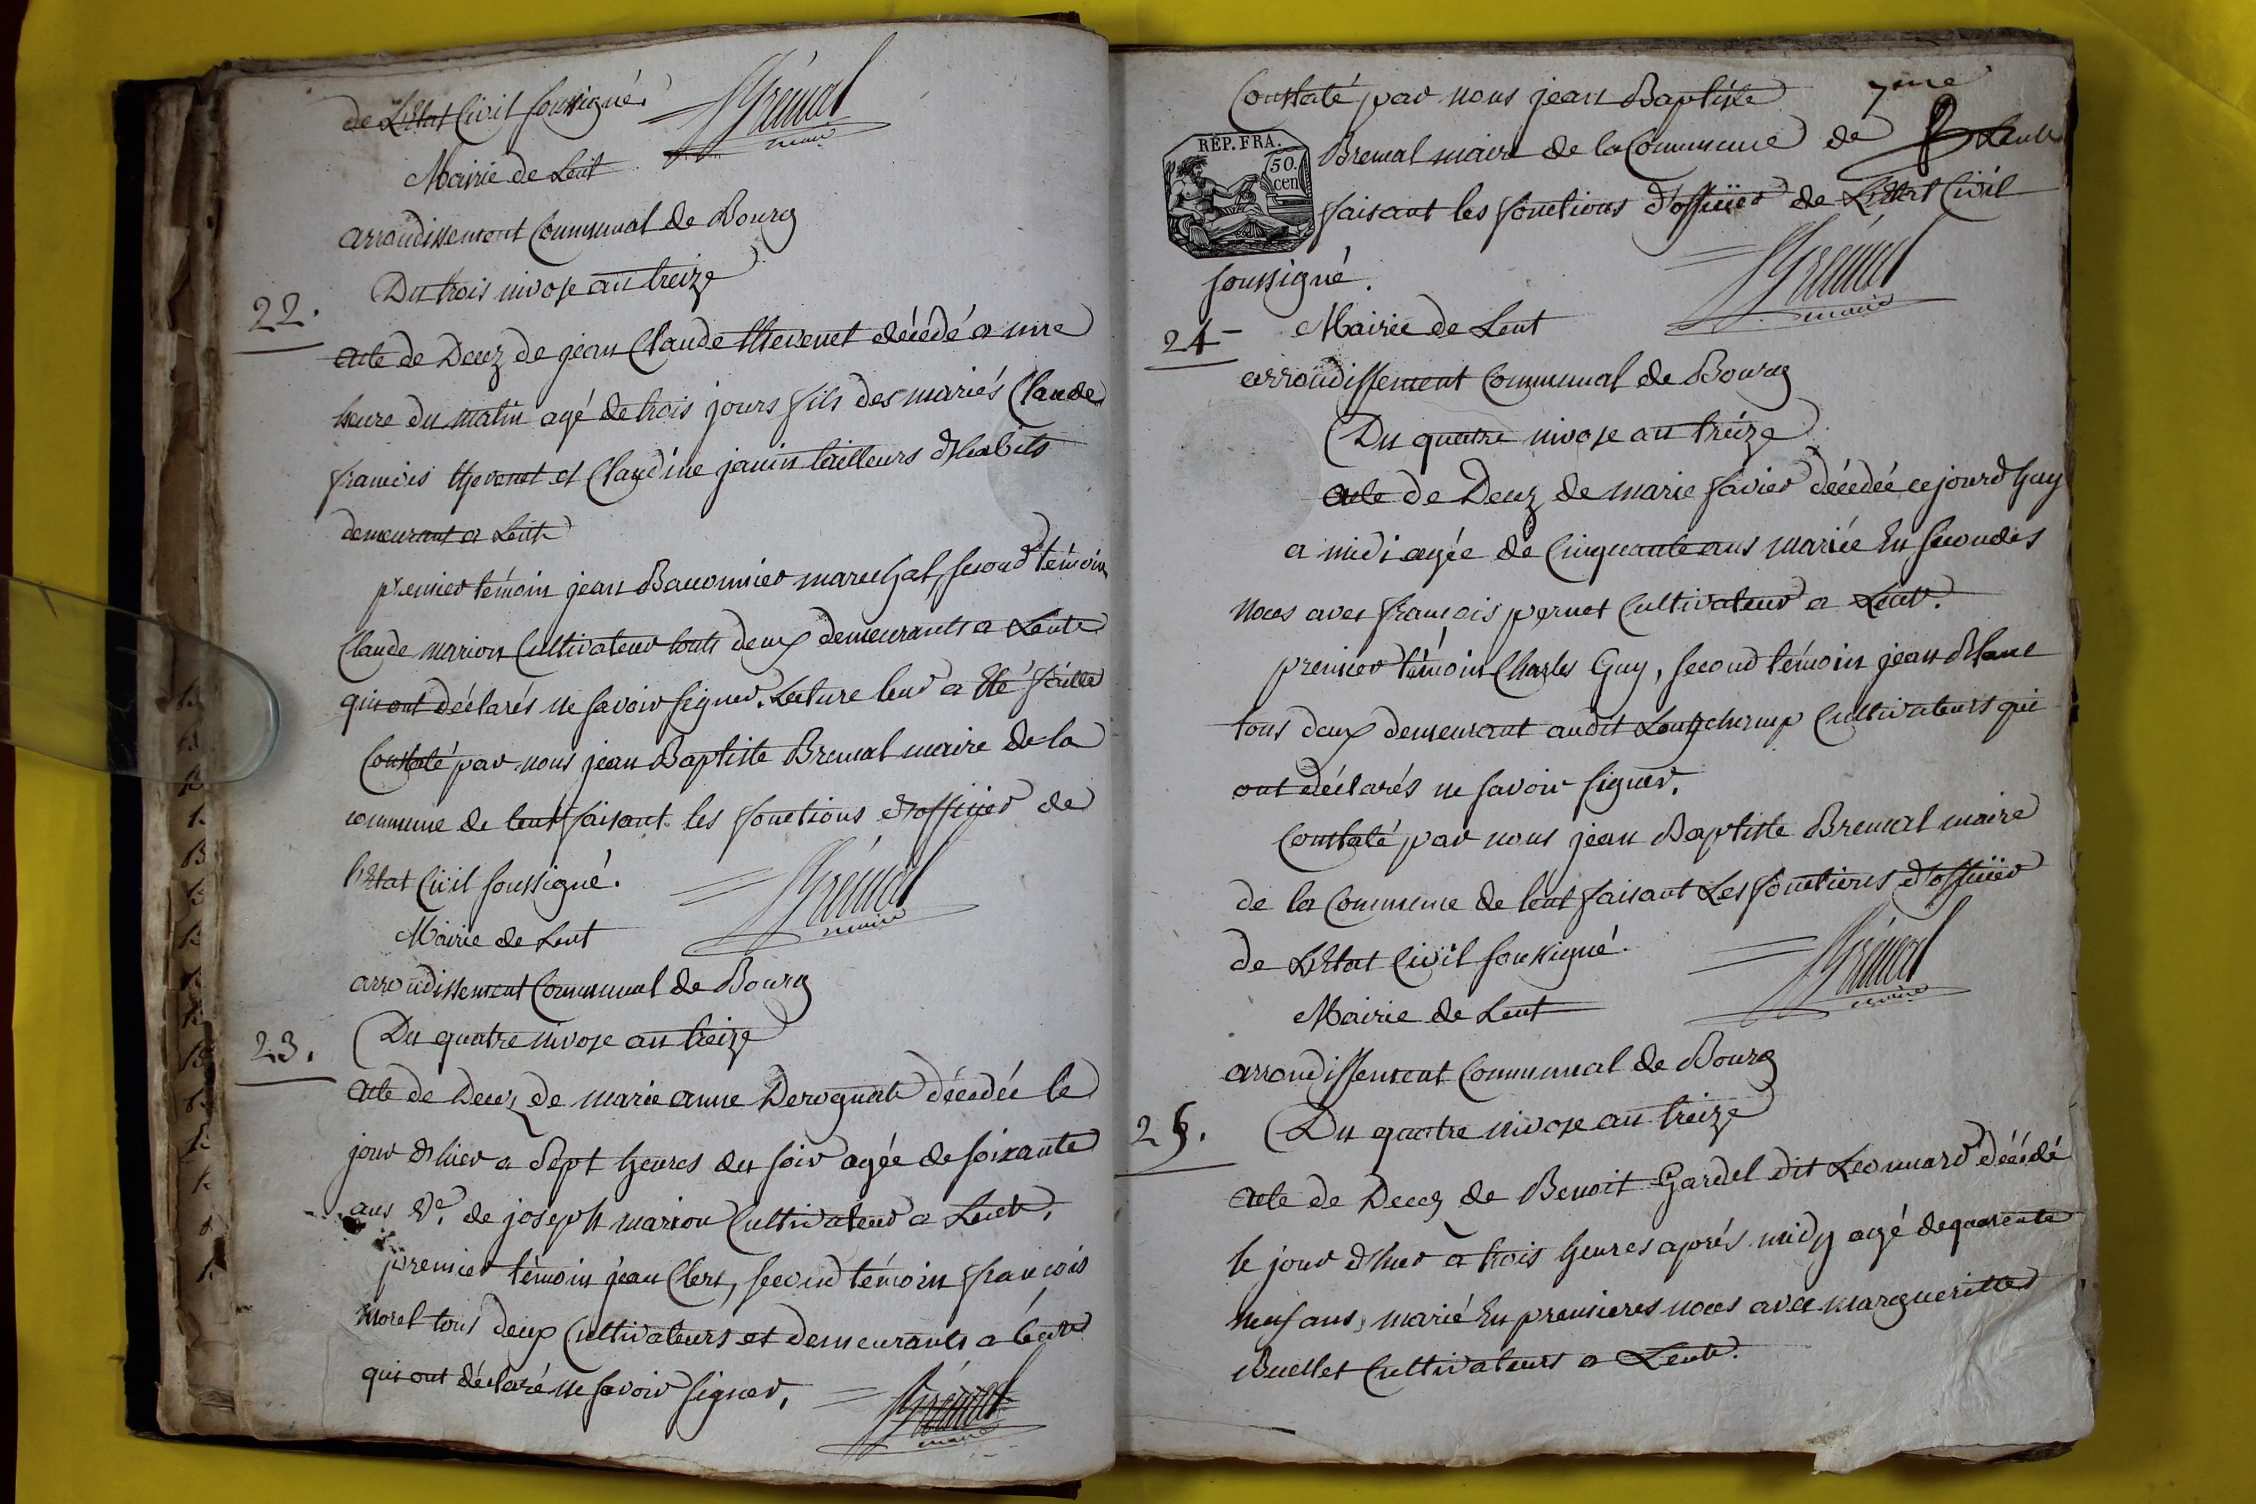 de L'Etat Civil soussigné.
Brémal
maire
Mairie de Lent
arrondissement Communal de Bourg
Du trois nivose an treize
22.
acte de Decez de jean Claude thevenet décédé a une
heure du matin agé de trois jours fils des mariés Claude
francois thevenet et Claudine janin tailleurs d'habits
demeurant a Lent
premier témoin jean Baconnier marechal, second témoin
Claude marion Cultivateur touts deux demeurants a Lent
qui ont déclarés ne savoir signer. Lecture leur a Eté faitte
Constaté par nous jean Baptiste Bremal maire de la
commune de lent faisant les fonctions d'officier de
l'Etat Civil soussigné.
Brémal
maire
Mairie de Lent
arrondissement Communal de Bourg
23. Du quatre nivose an treize
acte de Decez de marie anne Derognat décédée le
jour d'hier a Sept heures du soir agée de soixante
ans Ve. de joseph marion Cultivateur a Lent.
premier témoin jean Clerc, second témoin francois
morel tous deux Cultivateurs et demeurants a lent
qui ont déclaré ne savoir signer.
Brémal
maire
Constaté par nous jean Baptiste 7me
RÉP. FRA.
50.
cen
Bremal maire de la Commune de Lent
faisant les fonctions d'officier de L'Etat Civil
soussigné.
Brémal
maire
24 Mairie de Lent
arrondissement Communal de Bourg
Du quatre nivose an treize
acte de Decez de marie favier décédée ce jourd'huy
a midi agée de Cinquante ans mariée En secondes
noces avec francois pernet Cultivateur a Lent.
premier témoin Charles Guy, second témoin jean Blanc
tous deux demeurant audit Longchamp Cultivateurs qui
ont déclarés ne savoir signer.
Constaté par nous jean Baptiste Bremal maire
de la Commune de lent faisant Les fonctions d'officier
de L'Etat Civil soussigné.
Brémal
maire
Mairie de Lent
arrondissement Communal de Bourg
25. Du quatre nivose an treize
acte de Decez de Benoit Gardel dit Leonnard décédé
le jour d'hier a trois heures aprés midy agé de quarente
neuf ans, marié En premieres noces avec margueritte
Buellet Cultivateurs a Lent.